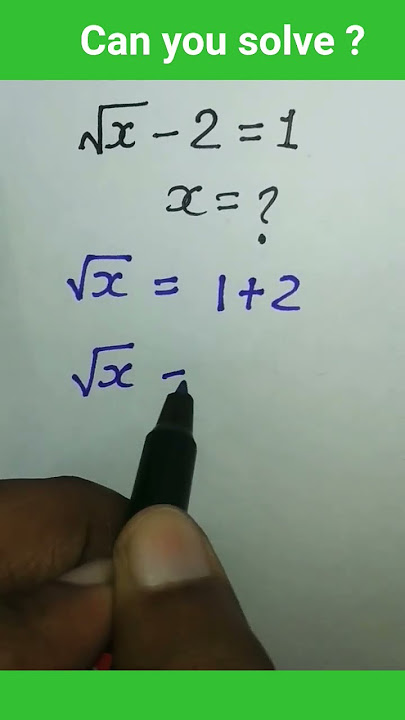 Can you solve ?
√x - 2 = 1
x = ?
√x = 1 + 2
√x =